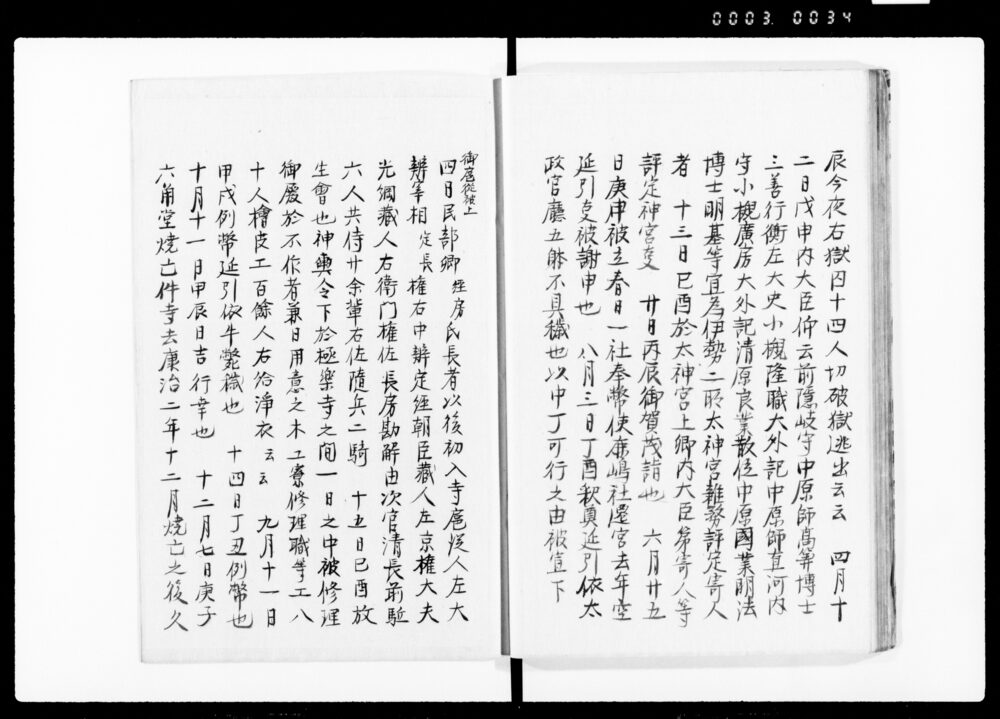 0003 0034
辰今夜右獄囚十四人切破獄逃出云云　四月十
二日戊申内大臣仰云前隱岐守中原師高等博士
三善行衡左大史小槻隆職大外記中原師直河内
守小槻廣房大外記清原良業散位中原國業明法
博士明基等宜為伊勢二所太神宮雜務評定寄人
者　十三日己酉於太神宮上卿内大臣第寄人等
評定神宮㕝　廿日丙辰御賀茂詣也　六月廿五
日庚申被立春日一社奉幣使鹿嶋社遷宮去年空
延引㕝被謝申也　八月三日丁酉釈奠延引依太
政官廳五躰不具穢也以中丁可行之由被宣下
御扈從被上
四日民部卿經房氏長者以後初入寺扈從人左大
辨宰相定長權右中辨定經朝臣藏人左京權大夫
光綱藏人右衛門權佐長房勘解由次官清長前駈
六人共侍廿余輩右佐隨兵二騎　十五日己酉放
生會也神輿令下於極樂寺之間一日之中被修理
御殿於不作者兼日用意之木工寮修理職等工八
十人檜皮工百餘人右給淨衣云云　九月十一日
甲戌例幣延引依牛斃穢也　十四日丁丑例幣也
十月十一日甲辰日吉行幸也　十二月七日庚子
六角堂燒亡件寺去康治二年十二月燒亡之後久